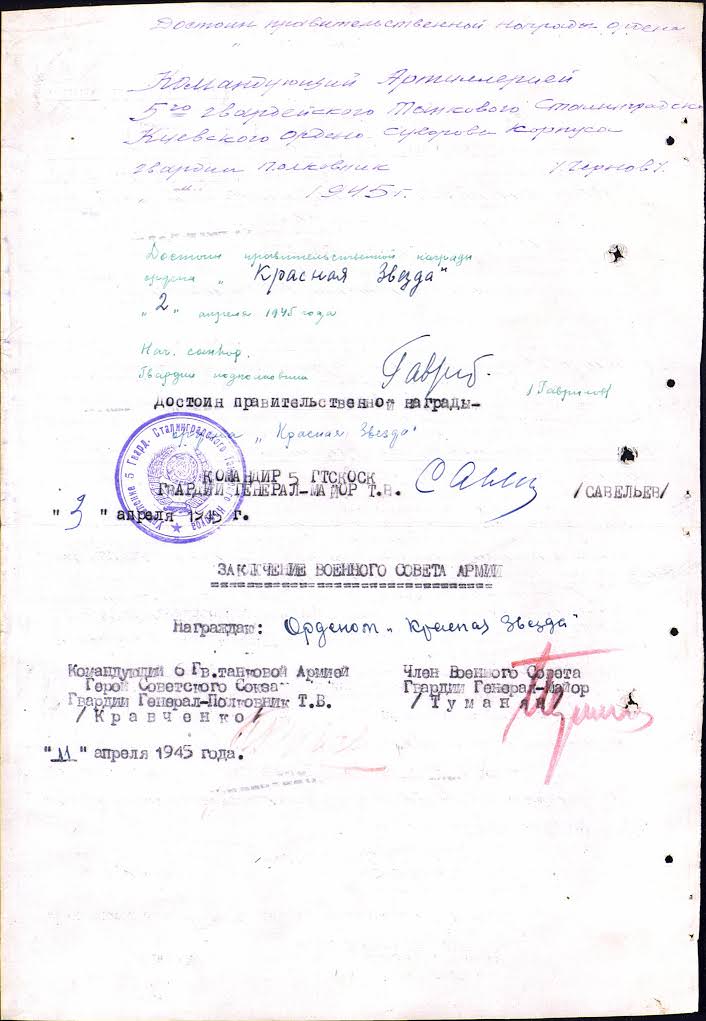 Достоин правительственной награды ордена
Командующий Артиллерией
5го гвардейского Танкового Сталинградско
Киевского ордена Суворова корпуса
гвардии полковник /Чернов/.
1945 г.
Достоин правительственной награды
ордена „Красная Звезда"
„2" апреля 1945 года
Нач.
Гвардии подполковник /Гаврилов/
достоин правительственной награды-
ордена „Красная Звезда"
КОМАНДИР 5 ГТСКОСК
ГВАРДИИ ГЕНЕРАЛ-МАЙОР Т.В. /САВЕЛЬЕВ/
"3" апреля 1945 г.
Управление 5 Гвард. Сталинградского Танкового Корпуса
ЗАКЛЮЧЕНИЕ ВОЕННОГО СОВЕТА АРМИИ
Награждаю: Орденом „Красная Звезда"
Командующий 6 Гв.танковой Армией Член Военного Совета
Герой Советского Союза Гвардии Генерал-Майор
Гвардии Генерал-Полковник Т.В. /Туманян/
/Кравченко/
"11" апреля 1945 года.